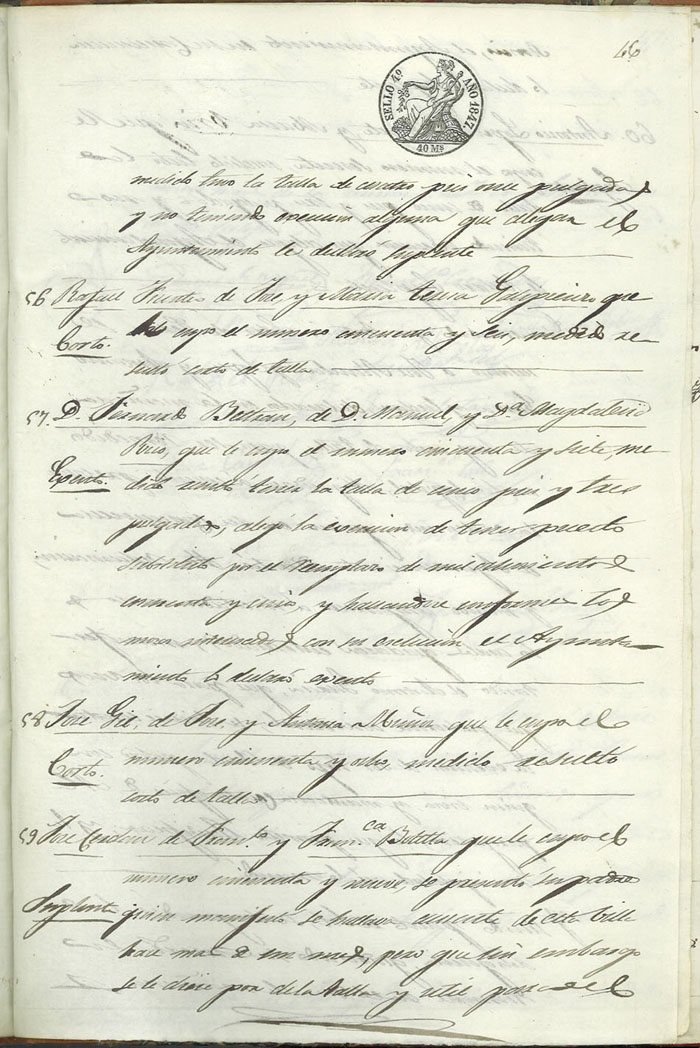 46
SELLO 4º AÑO 1847.
40 Ms
medido tuvo la talla de cuatro pies once pulgadas
y no teniendo exencion alguna que alegar el
Ayuntamiento le declaró suplente
56 Rafael Fuentes de Jose y Maria Teresa que
le cupo el numero cincuenta y seis, medido re-
Corto.
sultó corto de talla
57. D. Fernando Beltran, de D. Manuel, y Dª Magdalena
Rico, que le cupo el numero cincuenta y siete, me-
Exento.
dido resultó tener la talla de cinco pies y tres
pulgadas, alegó la exencion de tener puesto
substituto por el reemplazo de mil ochocientos
cuarenta y cinco, y hallandose conformes los
mozos interesados con su exclusion el Ayunta-
miento lo declaró exento
58 Jose Gil, de Jose, y Antonia Muñoz que le cupo el
numero cincuenta y ocho, medido resultó
Corto.
corto de talla
59 Jose de Franco y Franca Botella que le cupo el
numero cincuenta y nueve, se presentó su padre
Suplente
quien manifestó se hallava ausente de esta Villa
hace mas de un mes, pero que sin embargo
se le diese por de la talla y util para el